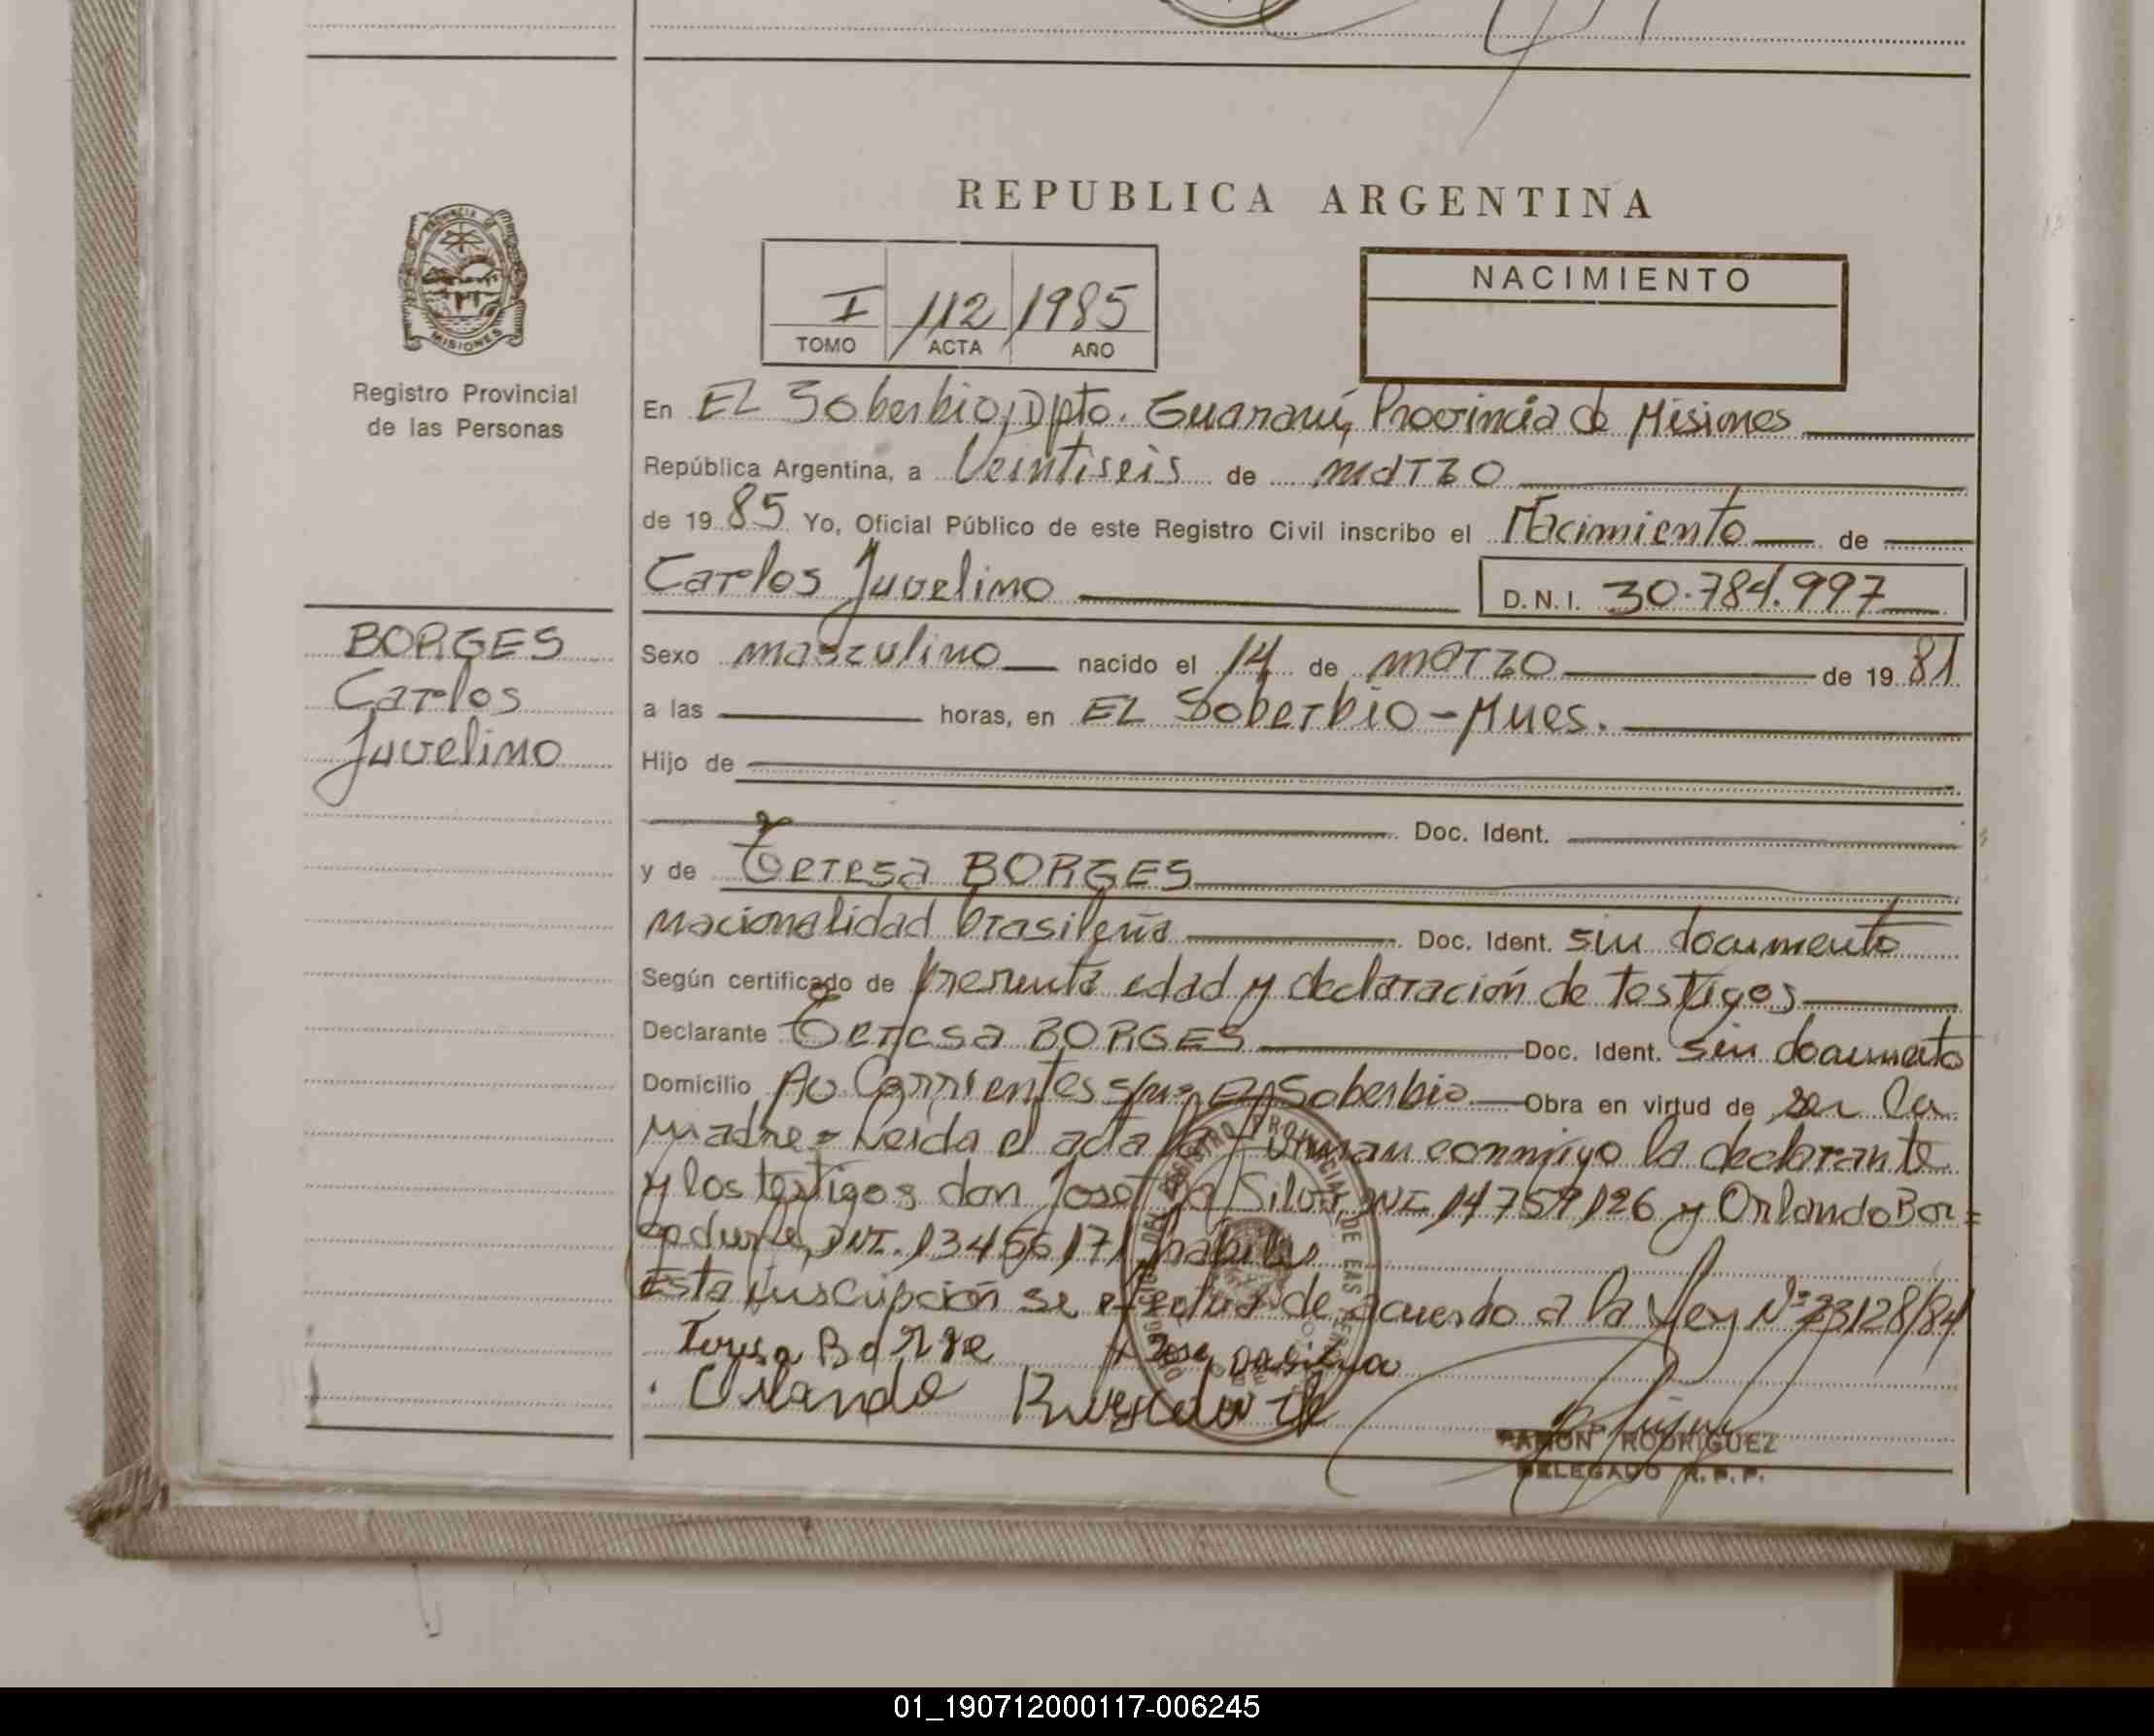 REPUBLICA ARGENTINA
PROVINCIA DE
MISIONES
Registro Provincial
de las Personas
I 112 1985
TOMO ACTA AÑO
NACIMIENTO
En EL Soberbio, Dpto. Guaraní, Provincia de Misiones
República Argentina, a Veintiseis de marzo
de 19 85 Yo, Oficial Público de este Registro Civil inscribo el Nacimiento de
Carlos Juvelino D.N.I. 30.784.997
BORGES
Carlos
Juvelino
Sexo masculino nacido el 14 de marzo de 19 81
a las horas, en EL Soberbio - Mnes.
Hijo de
Doc. Ident.
y de Teresa BORGES
nacionalidad brasileña Doc. Ident. sin documento
Según certificado de presunta edad y declaración de testigos
Declarante Teresa BORGES Doc. Ident. sin documento
Domicilio Av Corrientes s/nº El Soberbio Obra en virtud de ser la
madre = Leida el acta la firman conmigo la declarante
y los testigos don José Da Silva DNI 14759126 y Orlando
DNI. 13456171 habiles
Esta inscripción se efectua de acuerdo a la Ley Nº 23128/84
Teresa Borge Jose Dasilva
Orlando
RAMON RODRIGUEZ
DELEGADO R.P.P.
01_190712000117-006245